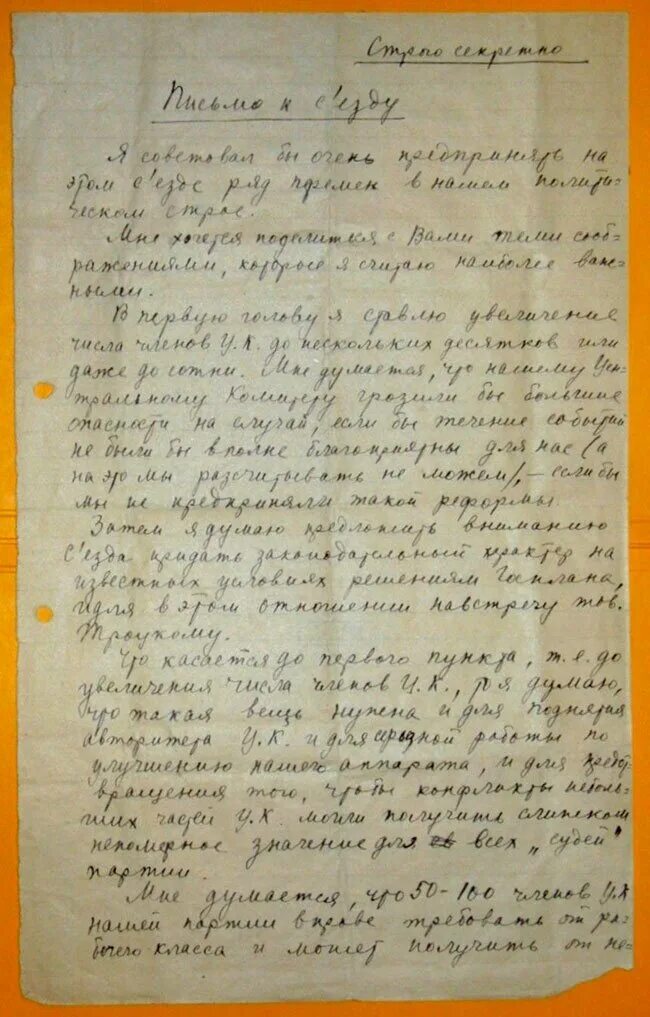 Строго секретно
Письмо к с'езду
Я советовал бы очень предпринять на
этом с'езде ряд перемен в нашем полити-
ческом строе.
Мне хочется поделиться с Вами теми сооб-
ражениями, которые я считаю наиболее важ-
ными.
В первую голову я ставлю увеличение
числа членов Ц.К. до нескольких десятков или
даже до сотни. Мне думается, что нашему Цен-
тральному Комитету грозили бы большие
опасности на случай, если бы течение событий
не были бы вполне благоприятны для нас (а
на это мы рассчитывать не можем), – если бы
мы не предприняли такой реформы.
Затем я думаю предложить вниманию
с'езда придать законодательный характер на
известных условиях решениям Госплана,
идля в этом отношении навстречу тов.
Троцкому.
Что касается до первого пункта, т.е. до
увеличения числа членов Ц.К., то я думаю,
что такая вещь нужна и для поднятия
авторитета Ц.К. и для серьезной работы по
улучшению нашего аппарата, и для предот-
вращения того, чтобы конфликты неболь-
ших частей Ц.К. могли получить слишком
непомерное значение для всех „судеб"
партии.
Мне думается, что 50-100 членов Ц.К.
нашей партии вправе требовать от ра-
бочего класса и может получить от не-